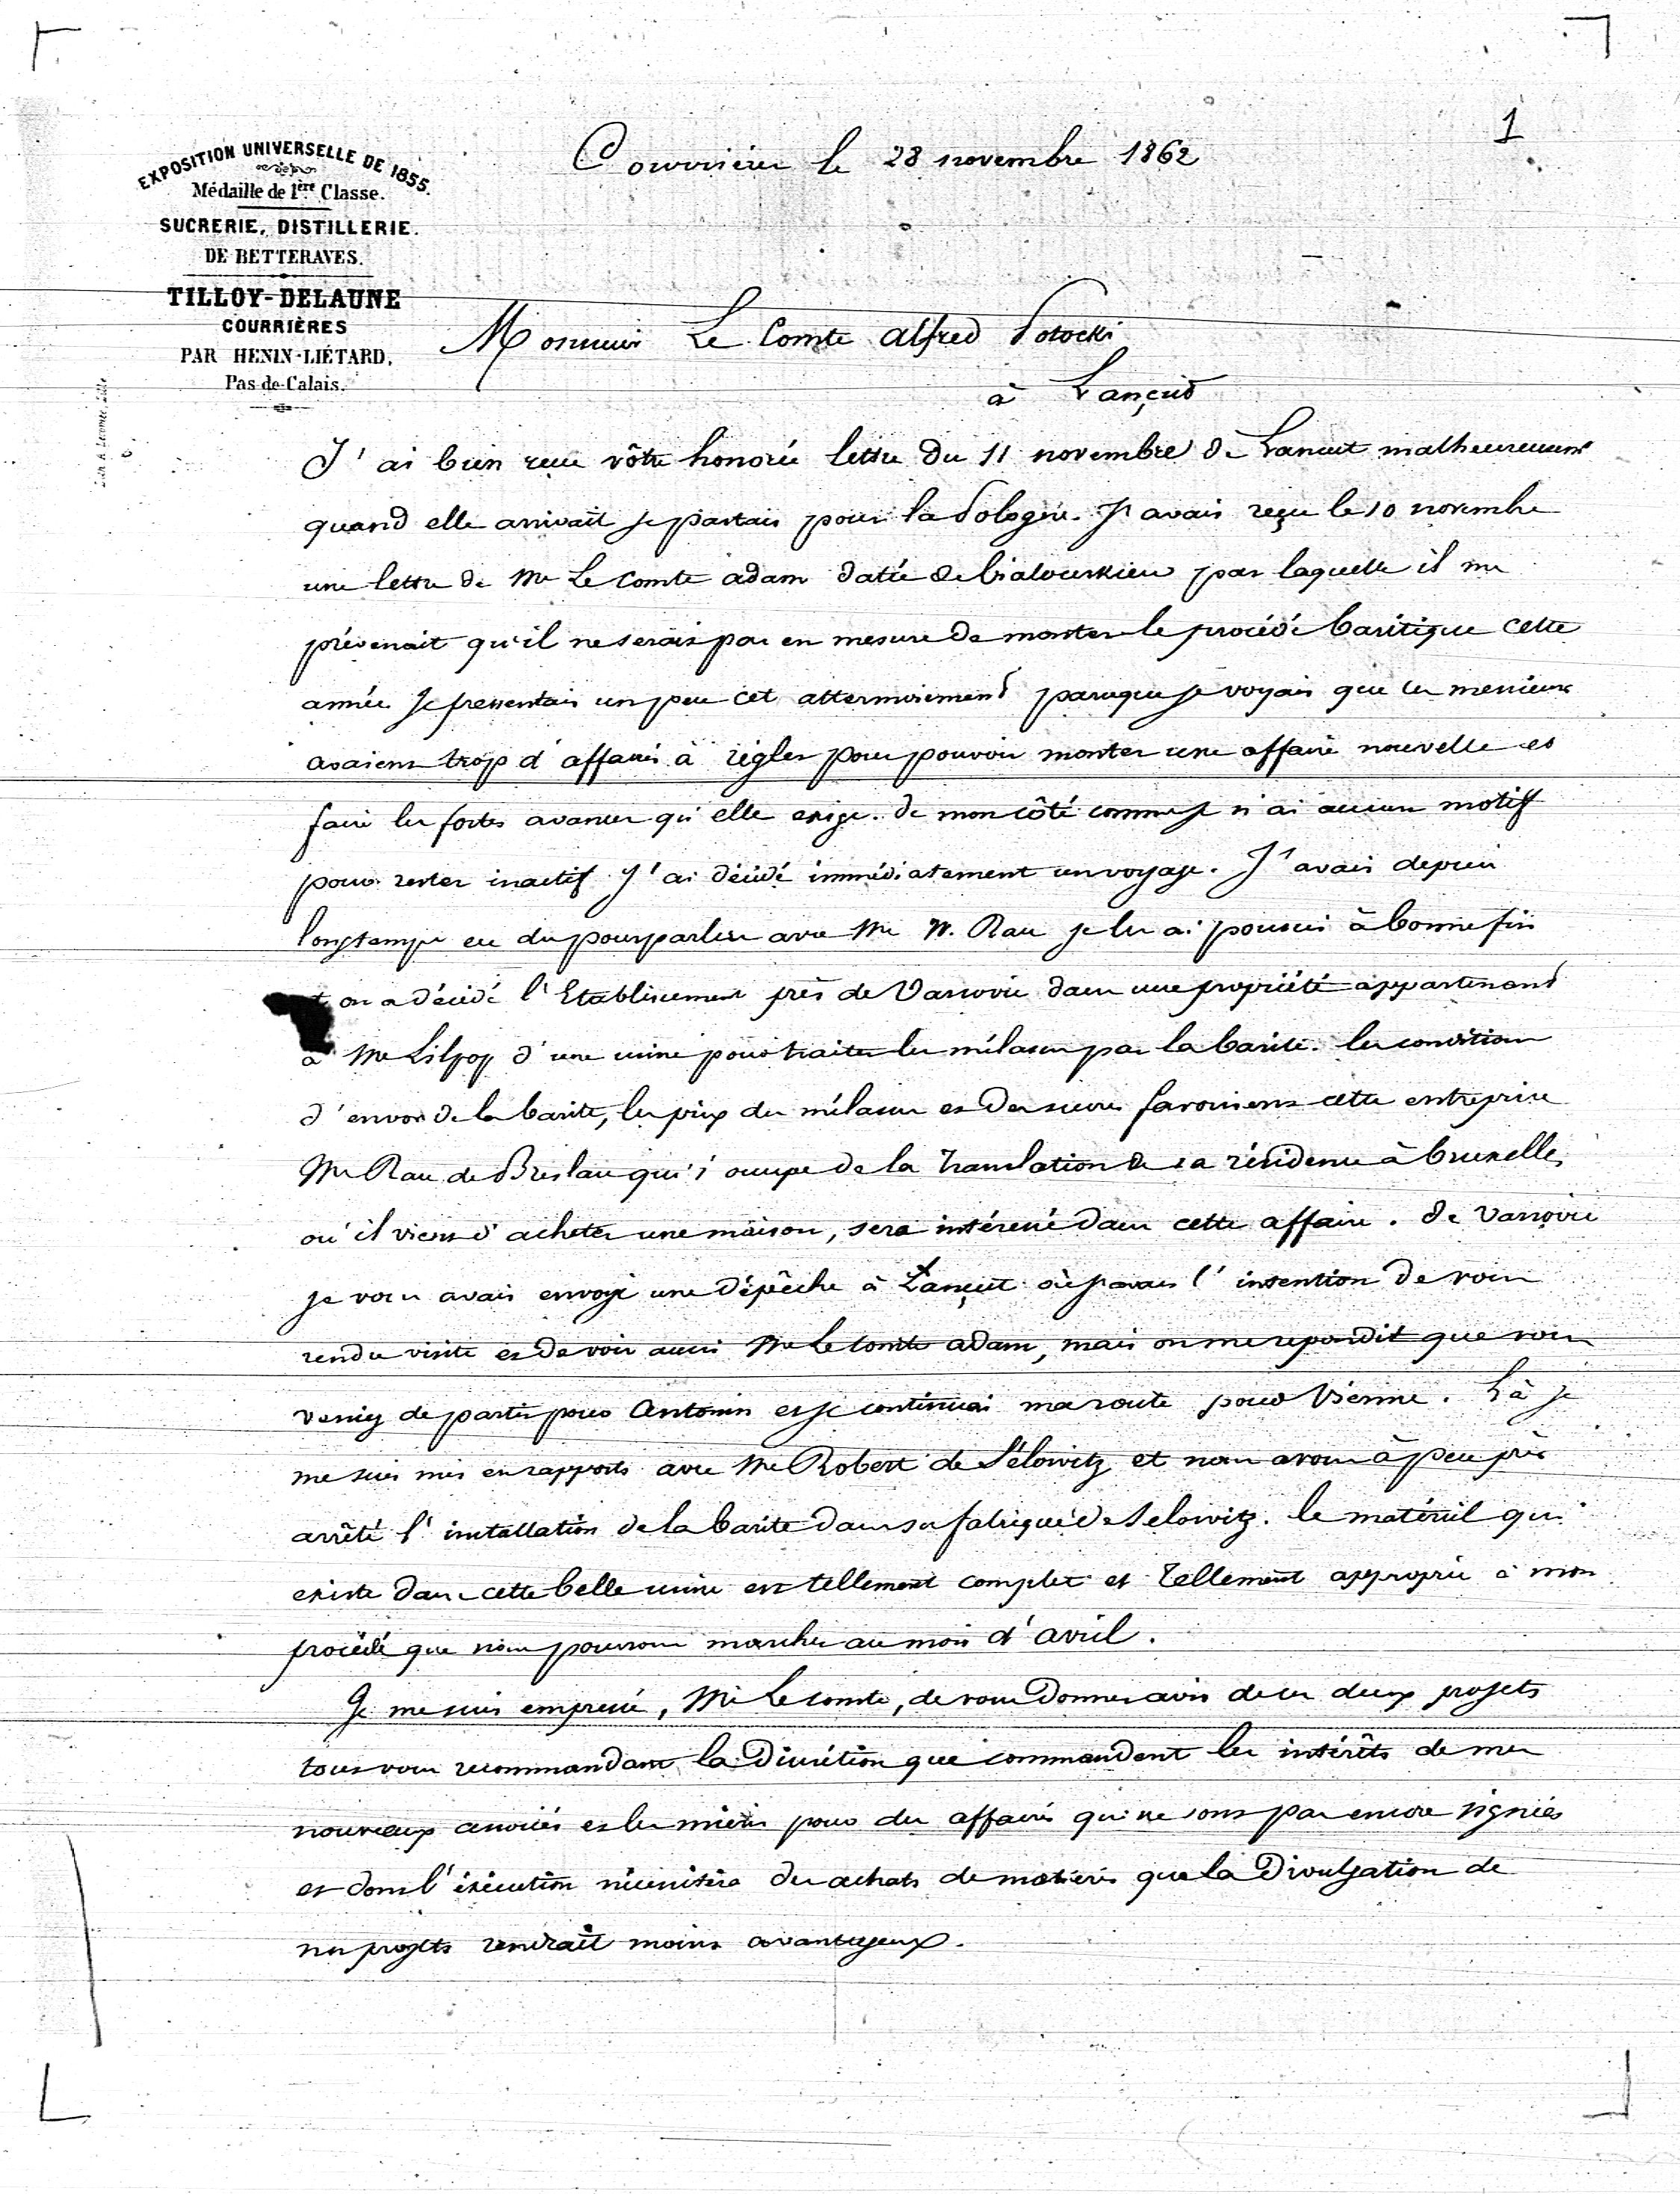 1
EXPOSITION UNIVERSELLE DE 1855.
Médaille de 1ère Classe.
SUCRERIE, DISTILLERIE.
DE BETTERAVES.
TILLOY-DELAUNE
COURRIÈRES
PAR HENIN-LIÉTARD,
Pas-de-Calais.
Courrières le 28 novembre 1862
Monsieur Le Comte Alfred Potocki
à Lançud
J'ai bien reçue vôtre honorée lettre du 11 novembre de Lancut malheureusemt
quand elle arrivait je partais pour la Pologne. J'avais reçu le 10 novembre
une lettre de Mr Le Comte adam datée de par laquelle il me
prévenait qu'il ne serait pas en mesure de monter le procédé baritique cette
année Je pressentais un peu cet attermoiement parceque je voyais que ces messieurs
avaient trop d'affaires à règler pour pouvoir monter une affaire nouvelle et
faire les fortes avances qu'elle exige. de mon côté comme je n'ai aucun motif
pour rester inactif J'ai décidé immédiatement un voyage. J'avais depuis
longtemps eu des pourparlers avec Mr W. Rau je les ai poussés à bonne fin
et on a décidé l'Etablissement près de Varsovie dans une propriété appartenant
à Mr Lilpop d'une usine pour traiter les mélasses par la barite. les conditions
d'envoi de la barite, les prix des mélasses et des sucres favorisent cette entreprise
Mr Rau de Breslau qui s'occupe de la translation de sa résidence à bruxelles,
où il vient d'acheter une maison, sera intéressé dans cette affaire. de Varsovie
je vous avais envoyé une dépêche à Lançut où j'avais l'intention de vous
rendre visite et de voir aussi Mr Le comte adam, mais on me repondit que vous
veniez de partir pour Antonin et je continuai ma route pour Vienne. Là je
me suis mis en rapports avec Mr Robert de Sélowitz et nous avons à peu près
arrêté l'installation de la barite dans sa fabrique de Selowitz. le matériel qui
existe dans cette belle usine est tellement complet et tellement approprié à mon
procédé que nous pourrons marcher au mois d'avril.
Je me suis empressé, Mr Le comte, de vous donner avis de ces deux projets
tous vous recommandant la discrétion que commandent les intérêts de mes
nouveaux associés et les miens pour des affaires qui ne sont pas encore signées
et dont l'éxécution nécessitera des achats de matières que la divulgation de
nos projets rendrait moins avantageux.